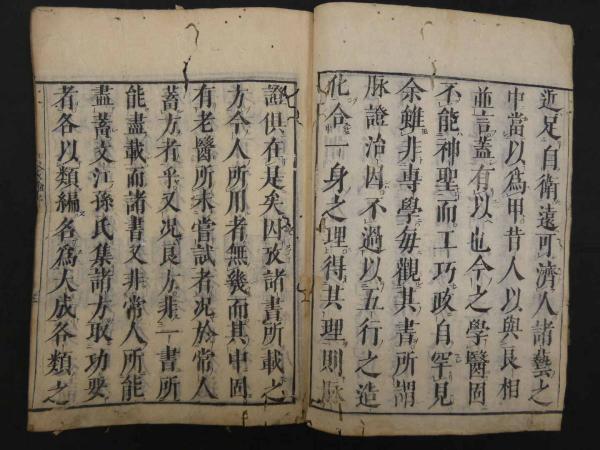 近足自衛遠可濟人諸藝之
中當以為甲昔人以與良相
並言蓋有以也今之學醫固
不能神聖而工巧政自罕見
余雖非專學每觀其書所謂
脉證治因不過以五行之造
化合一身之理得其理則脉
證俱在是矣因攷諸書所載之
方今人所用者無幾而其中固
有老醫所未嘗試者况於常人
蓄方者乎又况良方非一書所
能盡載而諸書又非常人所能
盡蓄文江孫氏集諸方取功要
者各以類編名為大成各類之